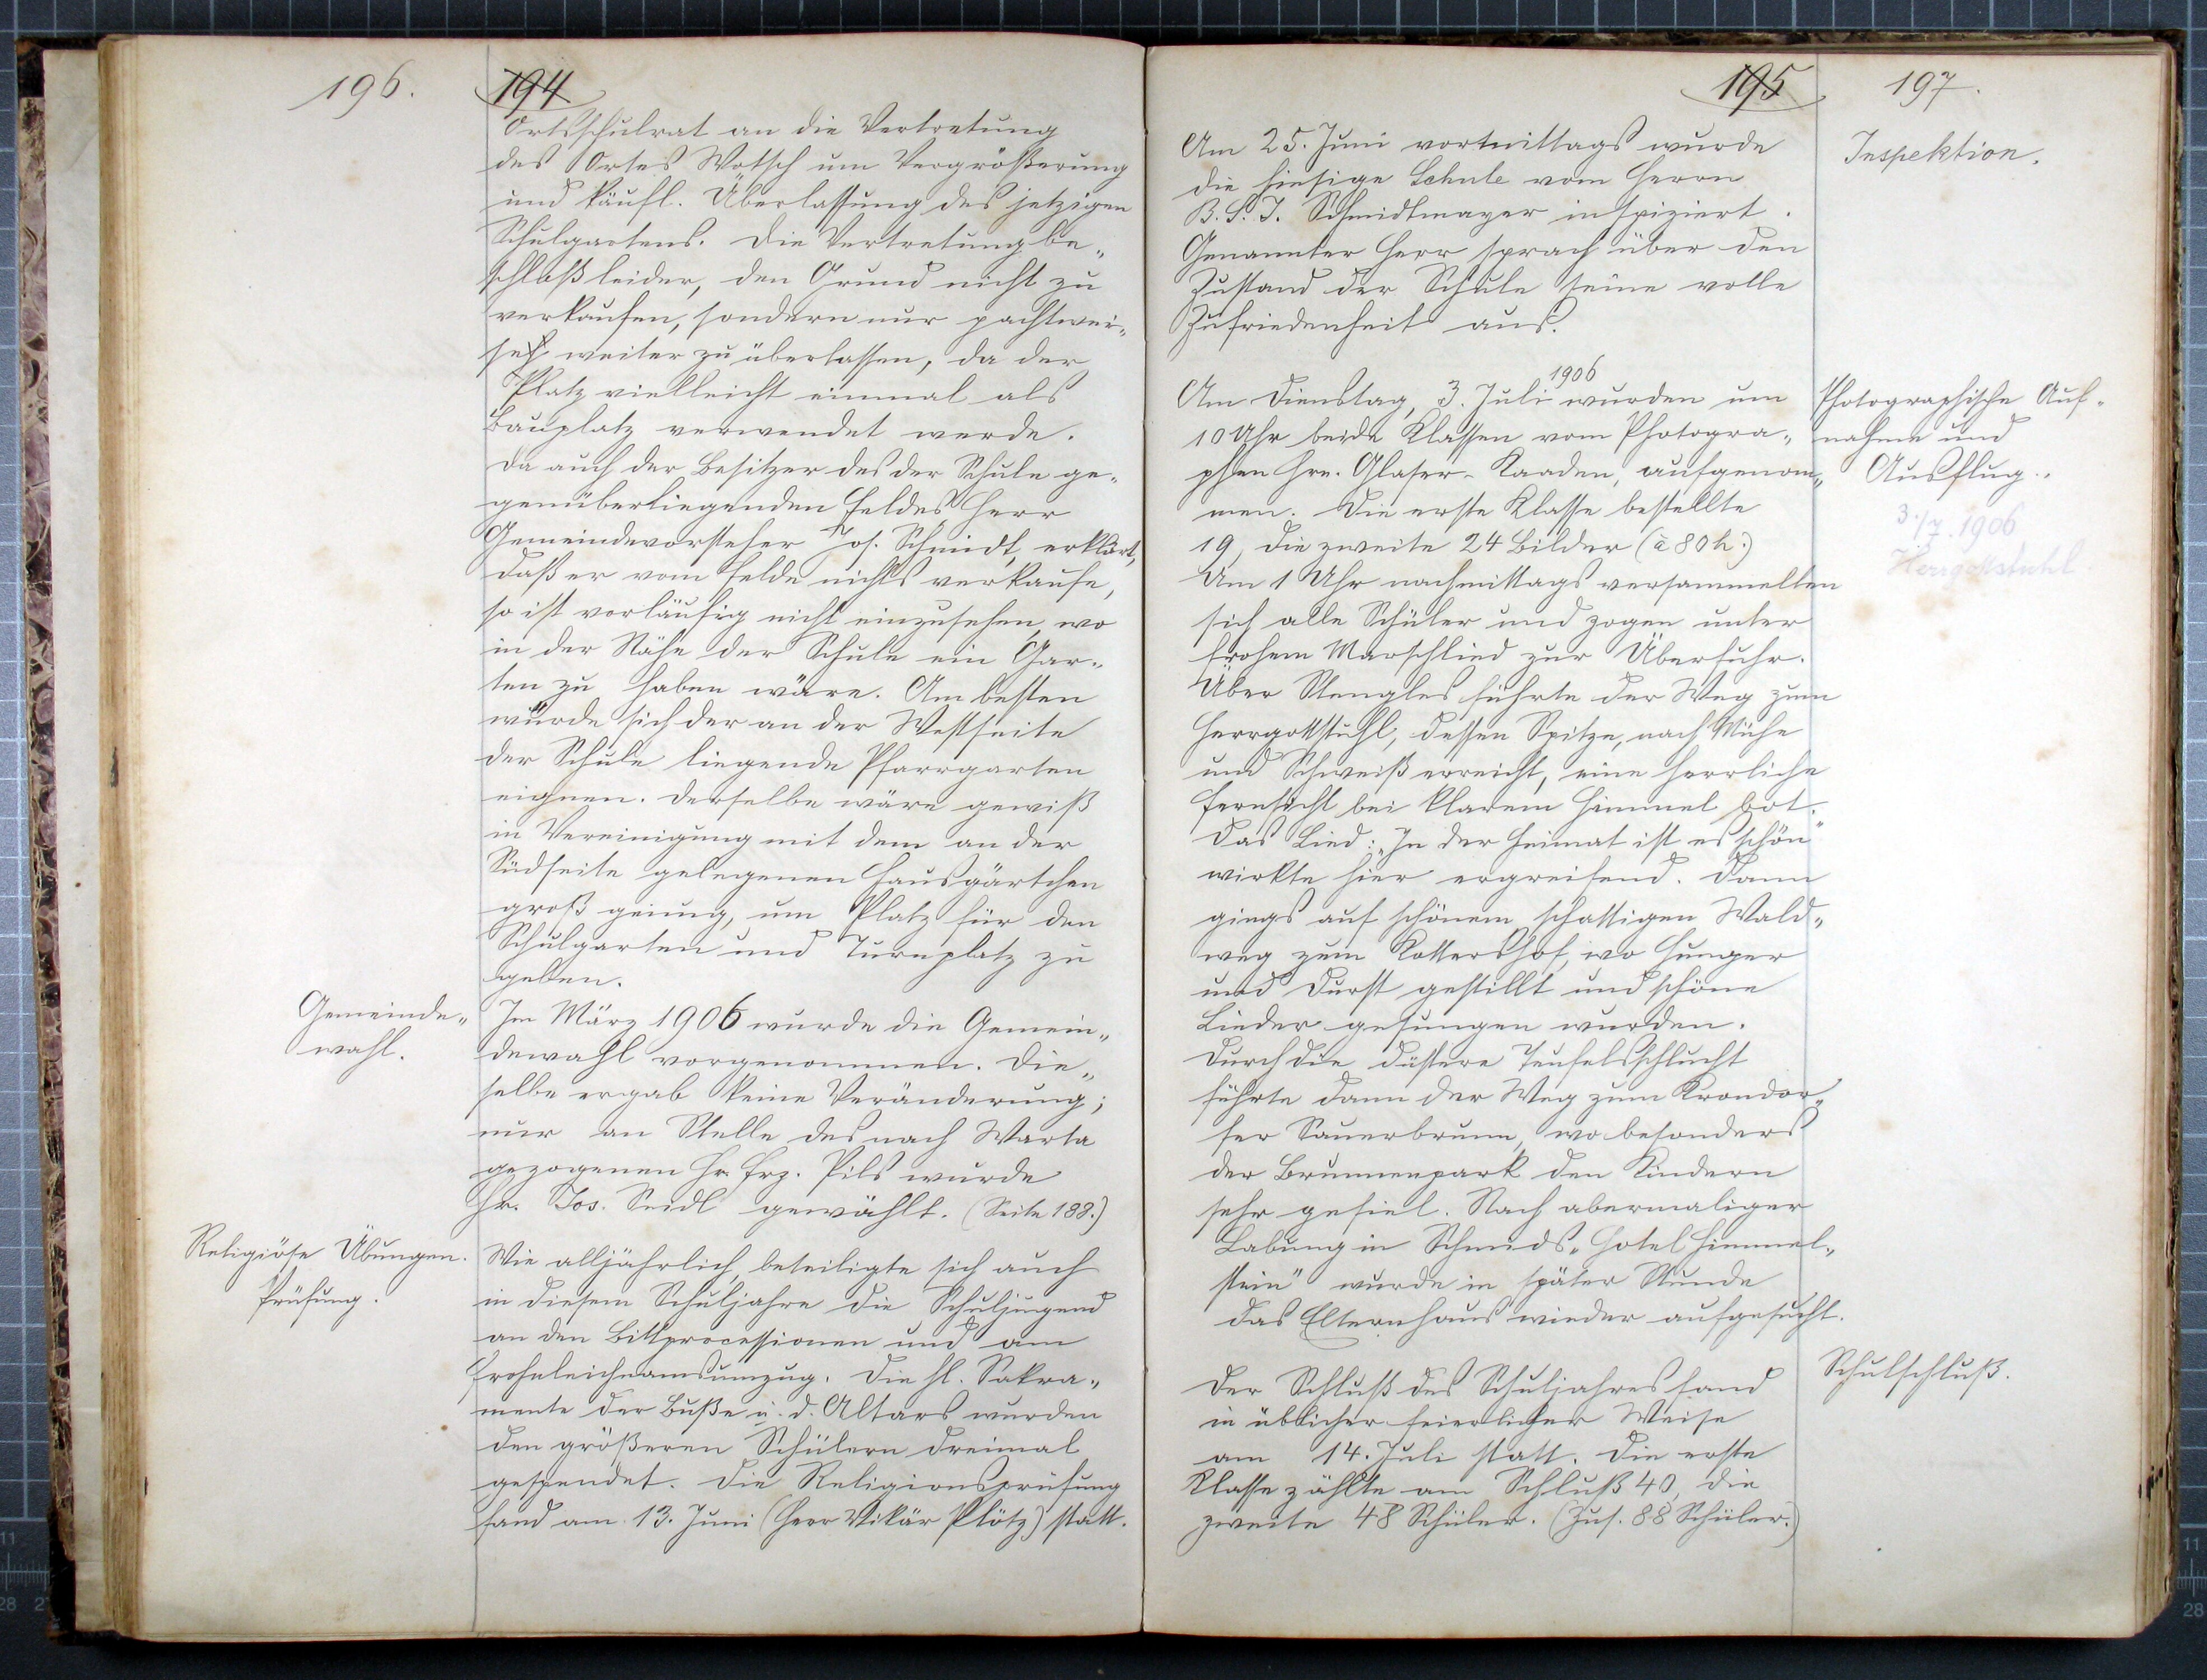 196.
194
Ortsschulrat an die Vertretung
des Ortes Wotsch um Vergrößerung
und käufl. Überlassung des jetzigen
Schulgartens. Die Vertretung be„
schloß leider, den Grund nicht zu
verkaufen, sondern nur pachtwei„
se weiter zu überlassen, da der
Platz vielleicht einmal als
Bauplatz verwendet werde.
Da auch der Besitzer des der Schule ge„
genüberliegenden Feldes Herr
Gemeindevorsteher Jos. Schmidt, erklärt,
daß er vom Felde nichts verkaufe,
so ist vorläufig nicht einzusehen, wo
in der Nähe der Schule ein Gar„
ten zu haben wäre. Am besten
würde sich der an der Westseite
der Schule liegende Pfarrgarten
eignen. Derselbe wäre gewiß
in Vereinigung mit dem an der
Südseite gelegenen Hausgärtchen
groß genug, um Platz für den
Schulgarten und Turnplatz zu
geben.
Gemeinde„
wahl.
Im März 1906 wurde die Gemein„
dewahl vorgenommen. Die„
selbe ergab keine Veränderung;
nur an Stelle des nach Warta
gezogenen Hr. Frz. Pils wurde
Hr. Jos. Seidl gewählt. (Seite 188.)
Religiöse Übungen.
Prüfung.
Wie alljährlich, beteiligte sich auch
in diesem Schuljahre die Schuljugend
an den Bittprocessionen und am
Frohnleichnamsumzug. Die hl. Sakra„
mente der Buße u. d. Altars wurden
den größeren Schülern dreimal
gespendet. Die Religionsprüfung
fand am 13. Juni (Herr Vikär Plötz) statt.
195
197.
Am 25. Juni vormittags wurde
die hiesige Schule vom Herrn
B. S. J. Schmidtmayer inspiziert.
Genannter Herr sprach über den
Zustand der Schule seine volle
Zufriedenheit aus.
Inspektion.
1906
Am Dienstag, 3. Juli wurden um
10 Uhr beide Klassen vom Photogra„
phen Hrn. Glaser-Kaaden, aufgenom„
men. Die erste Klasse bestellte
19, die zweite 24 Bilder (à 80 h.)
Um 1 Uhr nachmittags versammelten
sich alle Schüler und zogen unter
frohem Marschlied zur Überfuhr.
Über Stengles führte der Weg zum
Herrgottstuhl, dessen Spitze, nach Mühe
und Schweiß erreicht, eine herrliche
Fernsicht bei klarem Himmel bot.
Das Lied: „In der Heimat ist es schön"
wirkte hier ergreifend. Dann
gings auf schönem schattigen Wald„
weg zum Kottershof, wo Hunger
und Durst gestillt und schöne
Lieder gesungen wurden.
Durch die düstere Teufelsschlucht
führte dann der Weg zum Krondor„
fer Sauerbrunn, wo besonders
der Brunnenpark den Kindern
sehr gefiel. Nach abermaliger
Labung in Schmids „Hotel Himmel„
stein" wurde in später Stunde
das Elternhaus wieder aufgesucht.
Photographische Auf„
nahme und
Ausflug.
3./7. 1906
Herrgottstuhl
Der Schluß des Schuljahres fand
in üblicher feierlicher Weise
am 14. Juli statt. Die erste
Klasse zählte am Schluß 40, die
zweite 48 Schüler. (Zus. 88 Schüler.)
Schulschluß.